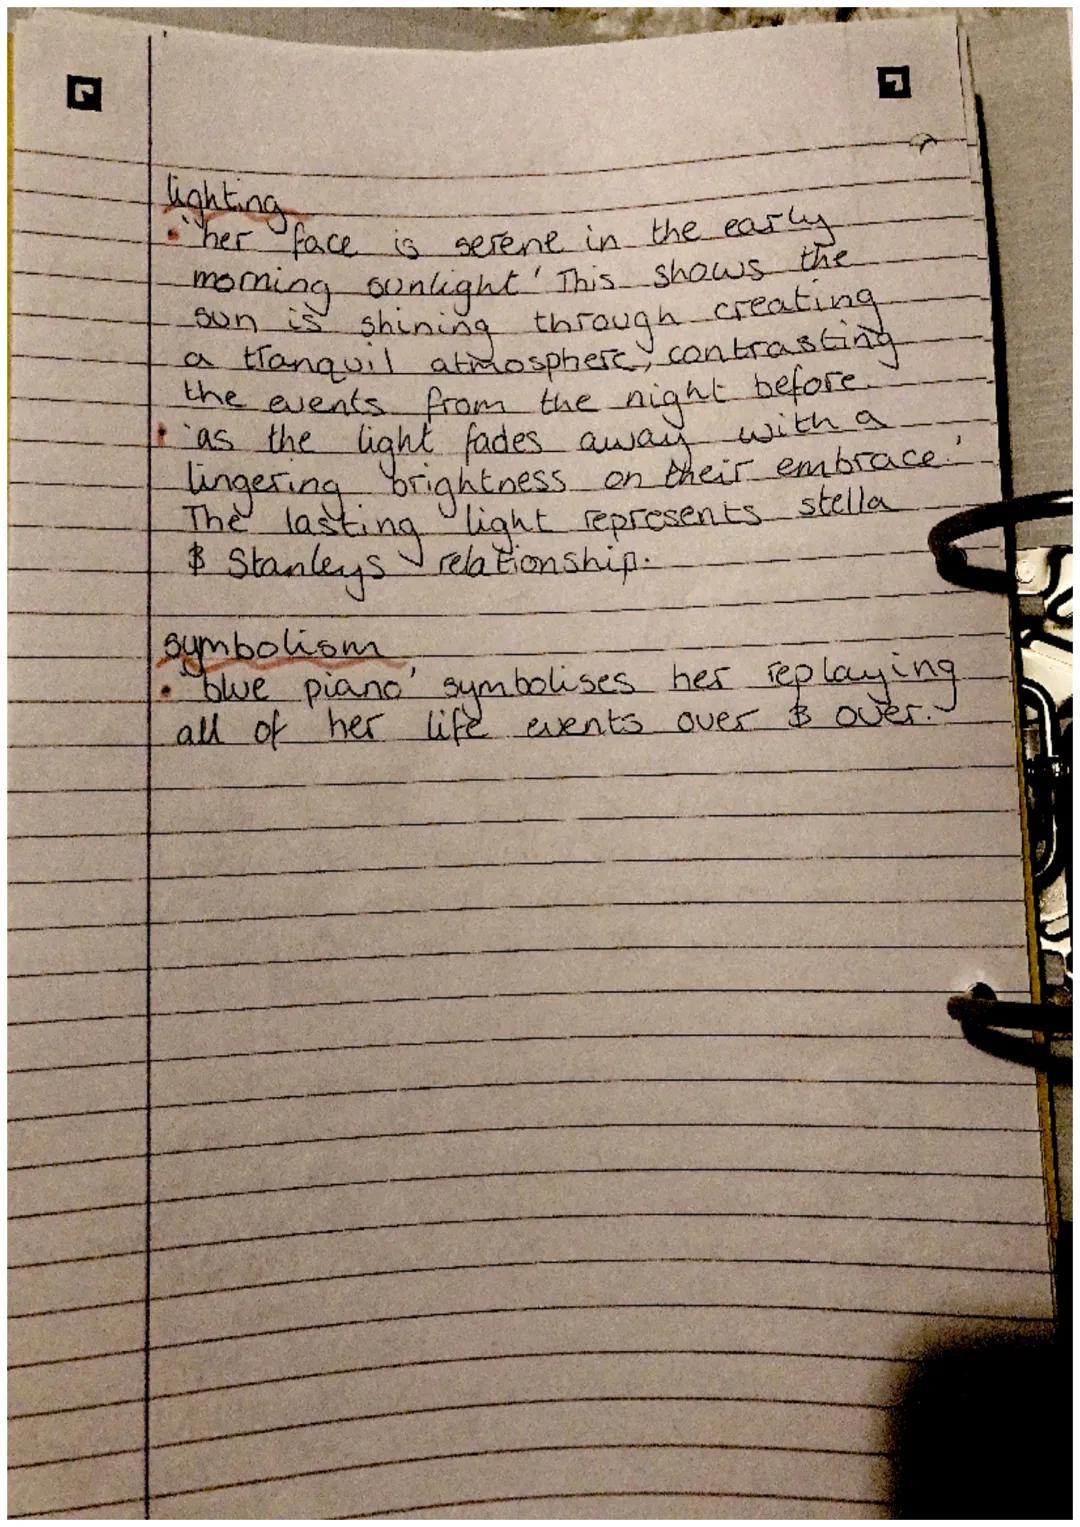 lighting
• 'her face is serene in the early
morning sunlight' This shows the
sun is shining through creating
a tranquil atmosphere, contrasting
the events from the night before.
• 'as the light fades away with a
lingering brightness on their embrace.'
The lasting light represents stella
& Stanleys relationship.
symbolism
• 'blue piano' symbolises her replaying
all of her life events over & over.